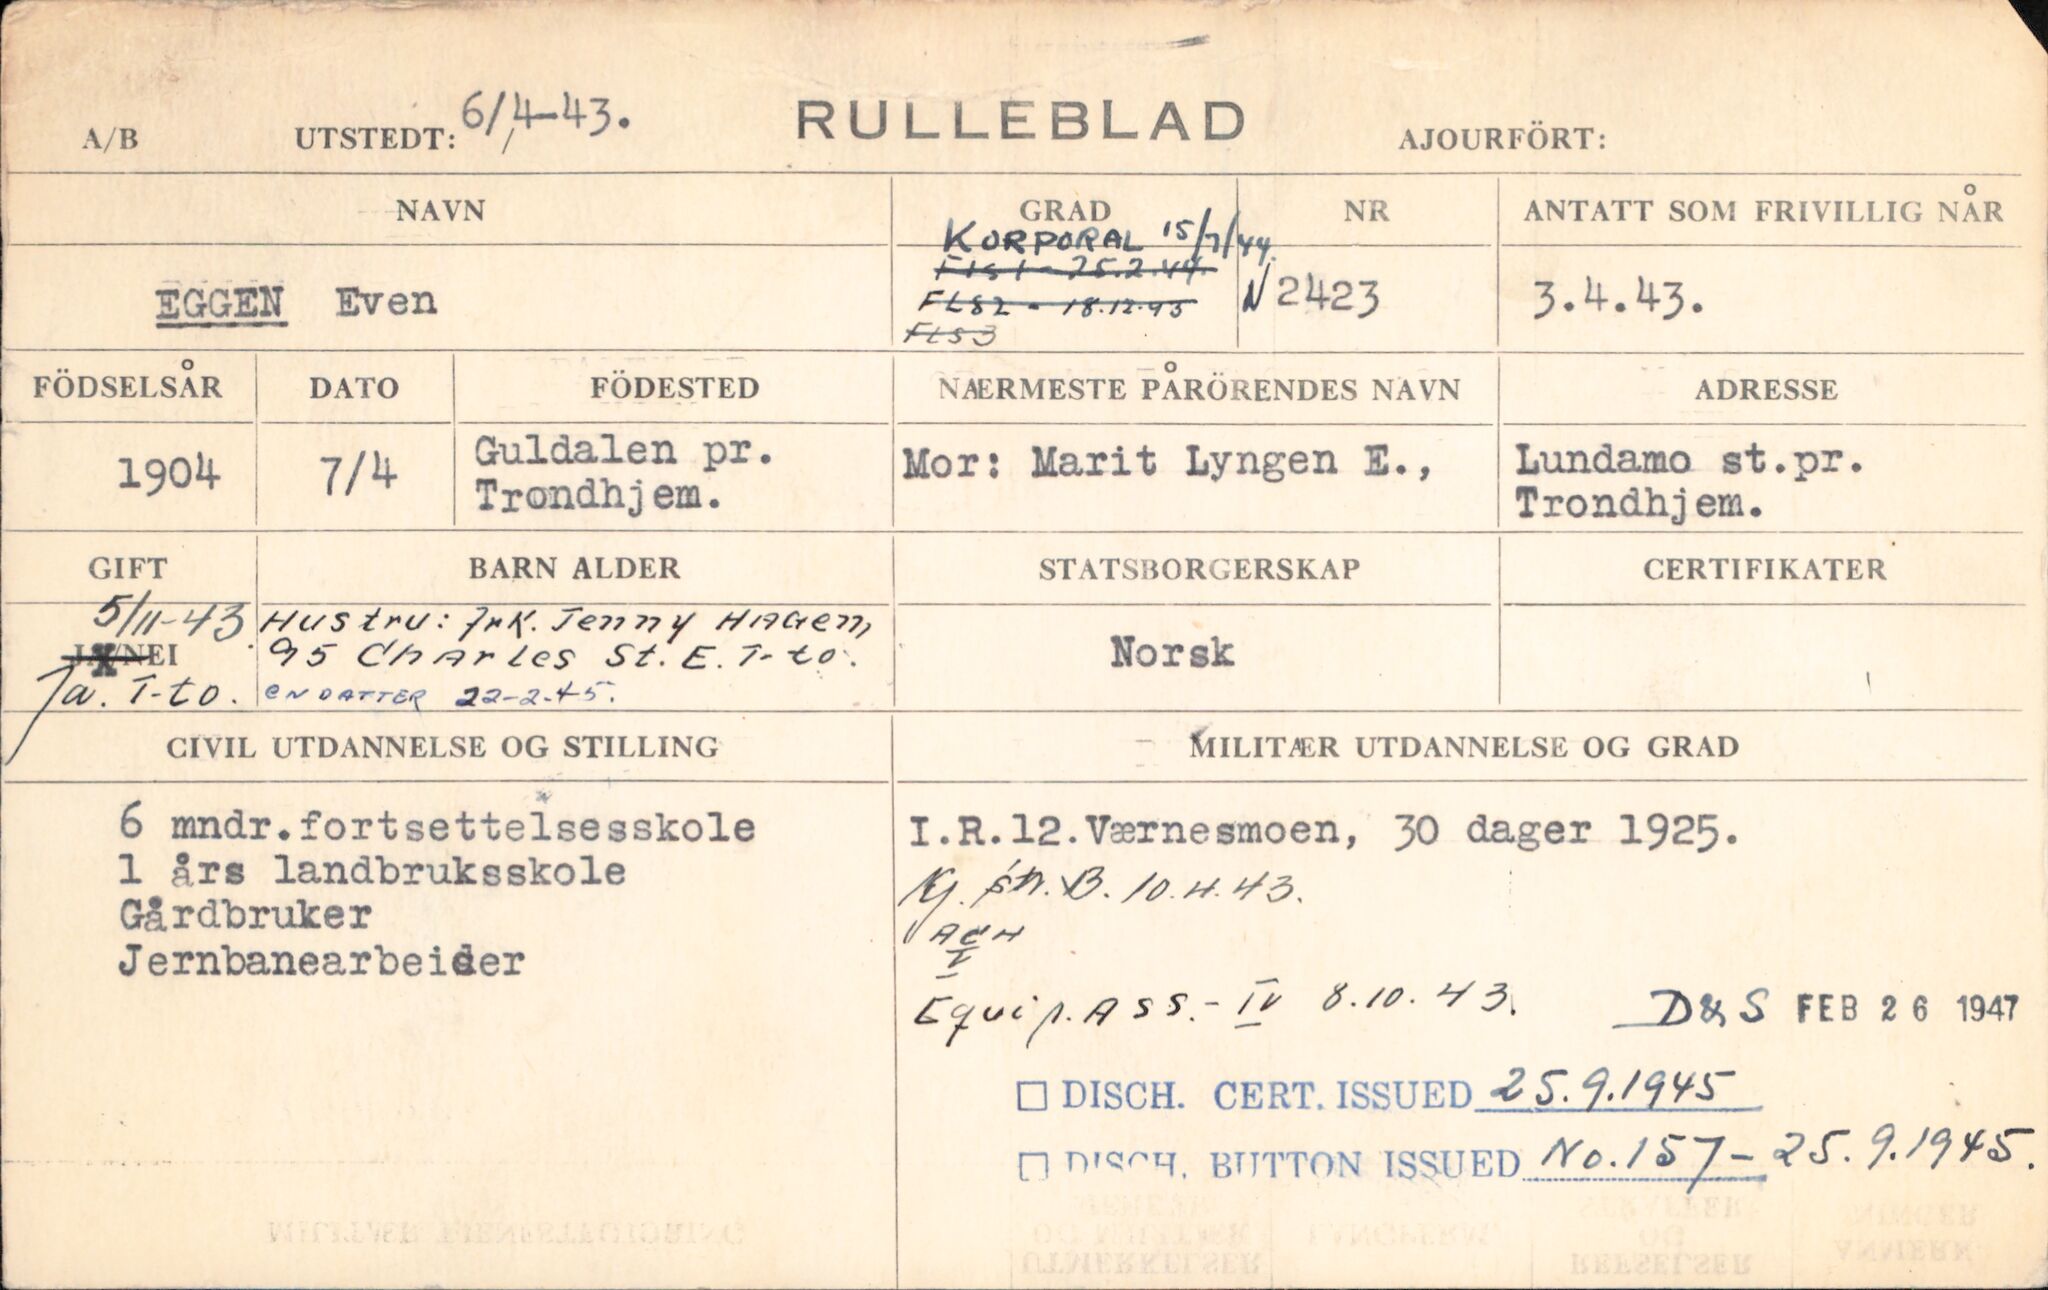 A/B UTSTEDT: 6/4-43. RULLEBLAD AJOURFÖRT:
NAVN GRAD NR ANTATT SOM FRIVILLIG NÅR
KORPORAL 15/7/44.
Fls1 - 25.2.44.
EGGEN Even FLS2 - 18.12.43 N 2423 3.4.43.
FLS3
FÖDSELSÅR DATO FÖDESTED NÆRMESTE PÅRÖRENDES NAVN ADRESSE
1904 7/4 Guldalen pr. Mor: Marit Lyngen E., Lundamo st.pr.
Trondhjem. Trondhjem.
GIFT BARN ALDER STATSBORGERSKAP CERTIFIKATER
5/11-43 Hustru: frk. Jenny Hagen,
JA/NEI 95 Charles St. E. T-to. Norsk
Ja. T-to. en datter 22-2-45.
CIVIL UTDANNELSE OG STILLING MILITÆR UTDANNELSE OG GRAD
6 mndr.fortsettelsesskole I.R.12.Værnesmoen, 30 dager 1925.
1 års landbruksskole B. 10.4.43.
Gårdbruker ACH
Jernbanearbeider I
Equip. Ass. - IV 8.10.43. D&S FEB 26 1947
DISCH. CERT. ISSUED 25.9.1945
DISCH. BUTTON ISSUED No. 157 - 25.9.1945.